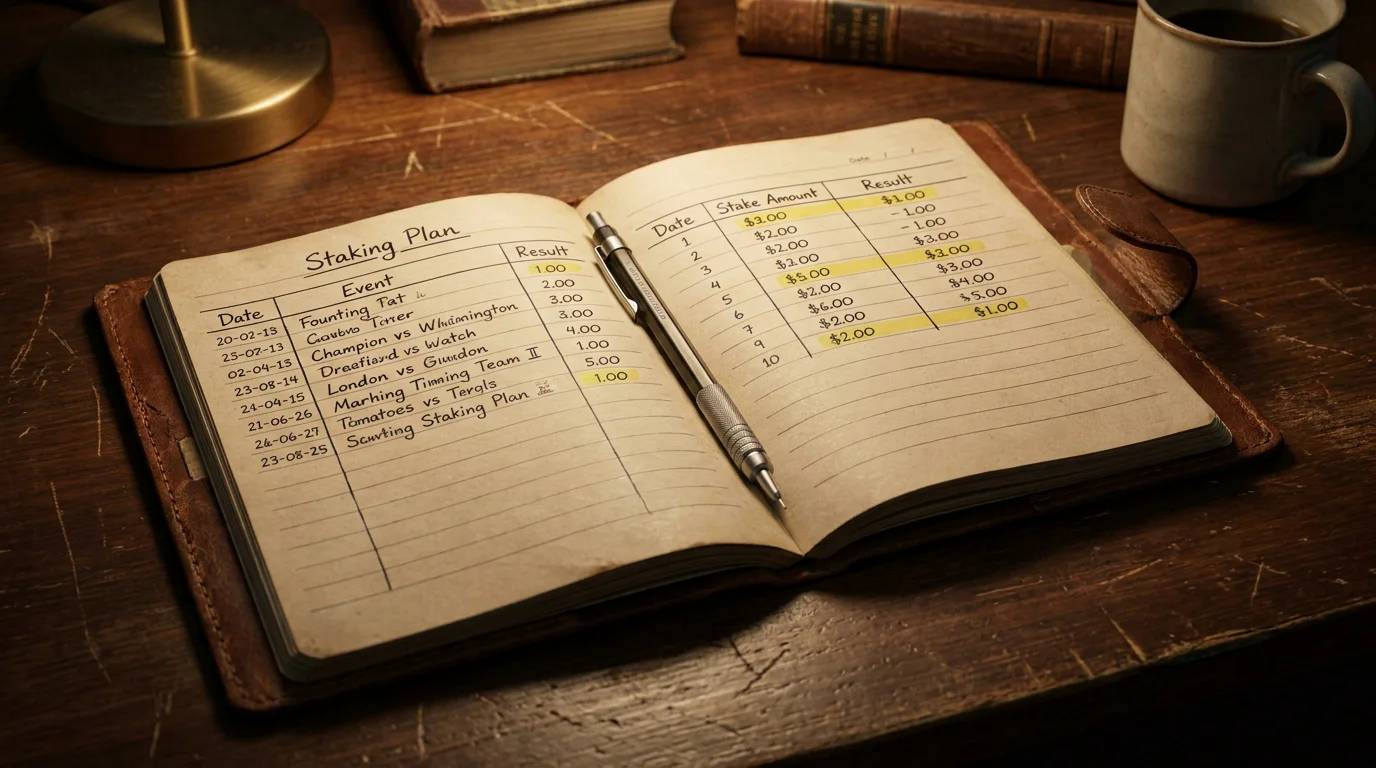 Staking Plan
Date Event Result
20-02-13 Founting Tat 1.00
25-07-13 Torer 2.00
02-04-13 Champion vs 3.00
23-08-14 vs Watch 3.00
24-04-15 London vs 4.00
21-06-26 Team II 1.00
-06-27 Tomatoes vs 5.00
23-08-25 Staking Plan 1.00
Date / /
Date Stake Amount Result
1 $3.00 $1.00
2 $2.00 -1.00
3 $2.00 -1.00
4 $2.00 $3.00
5 $5.00 $3.00
7 $2.00 $3.00
9 $6.00 $4.00
10 $2.00 $5.00
$2.00 $1.00